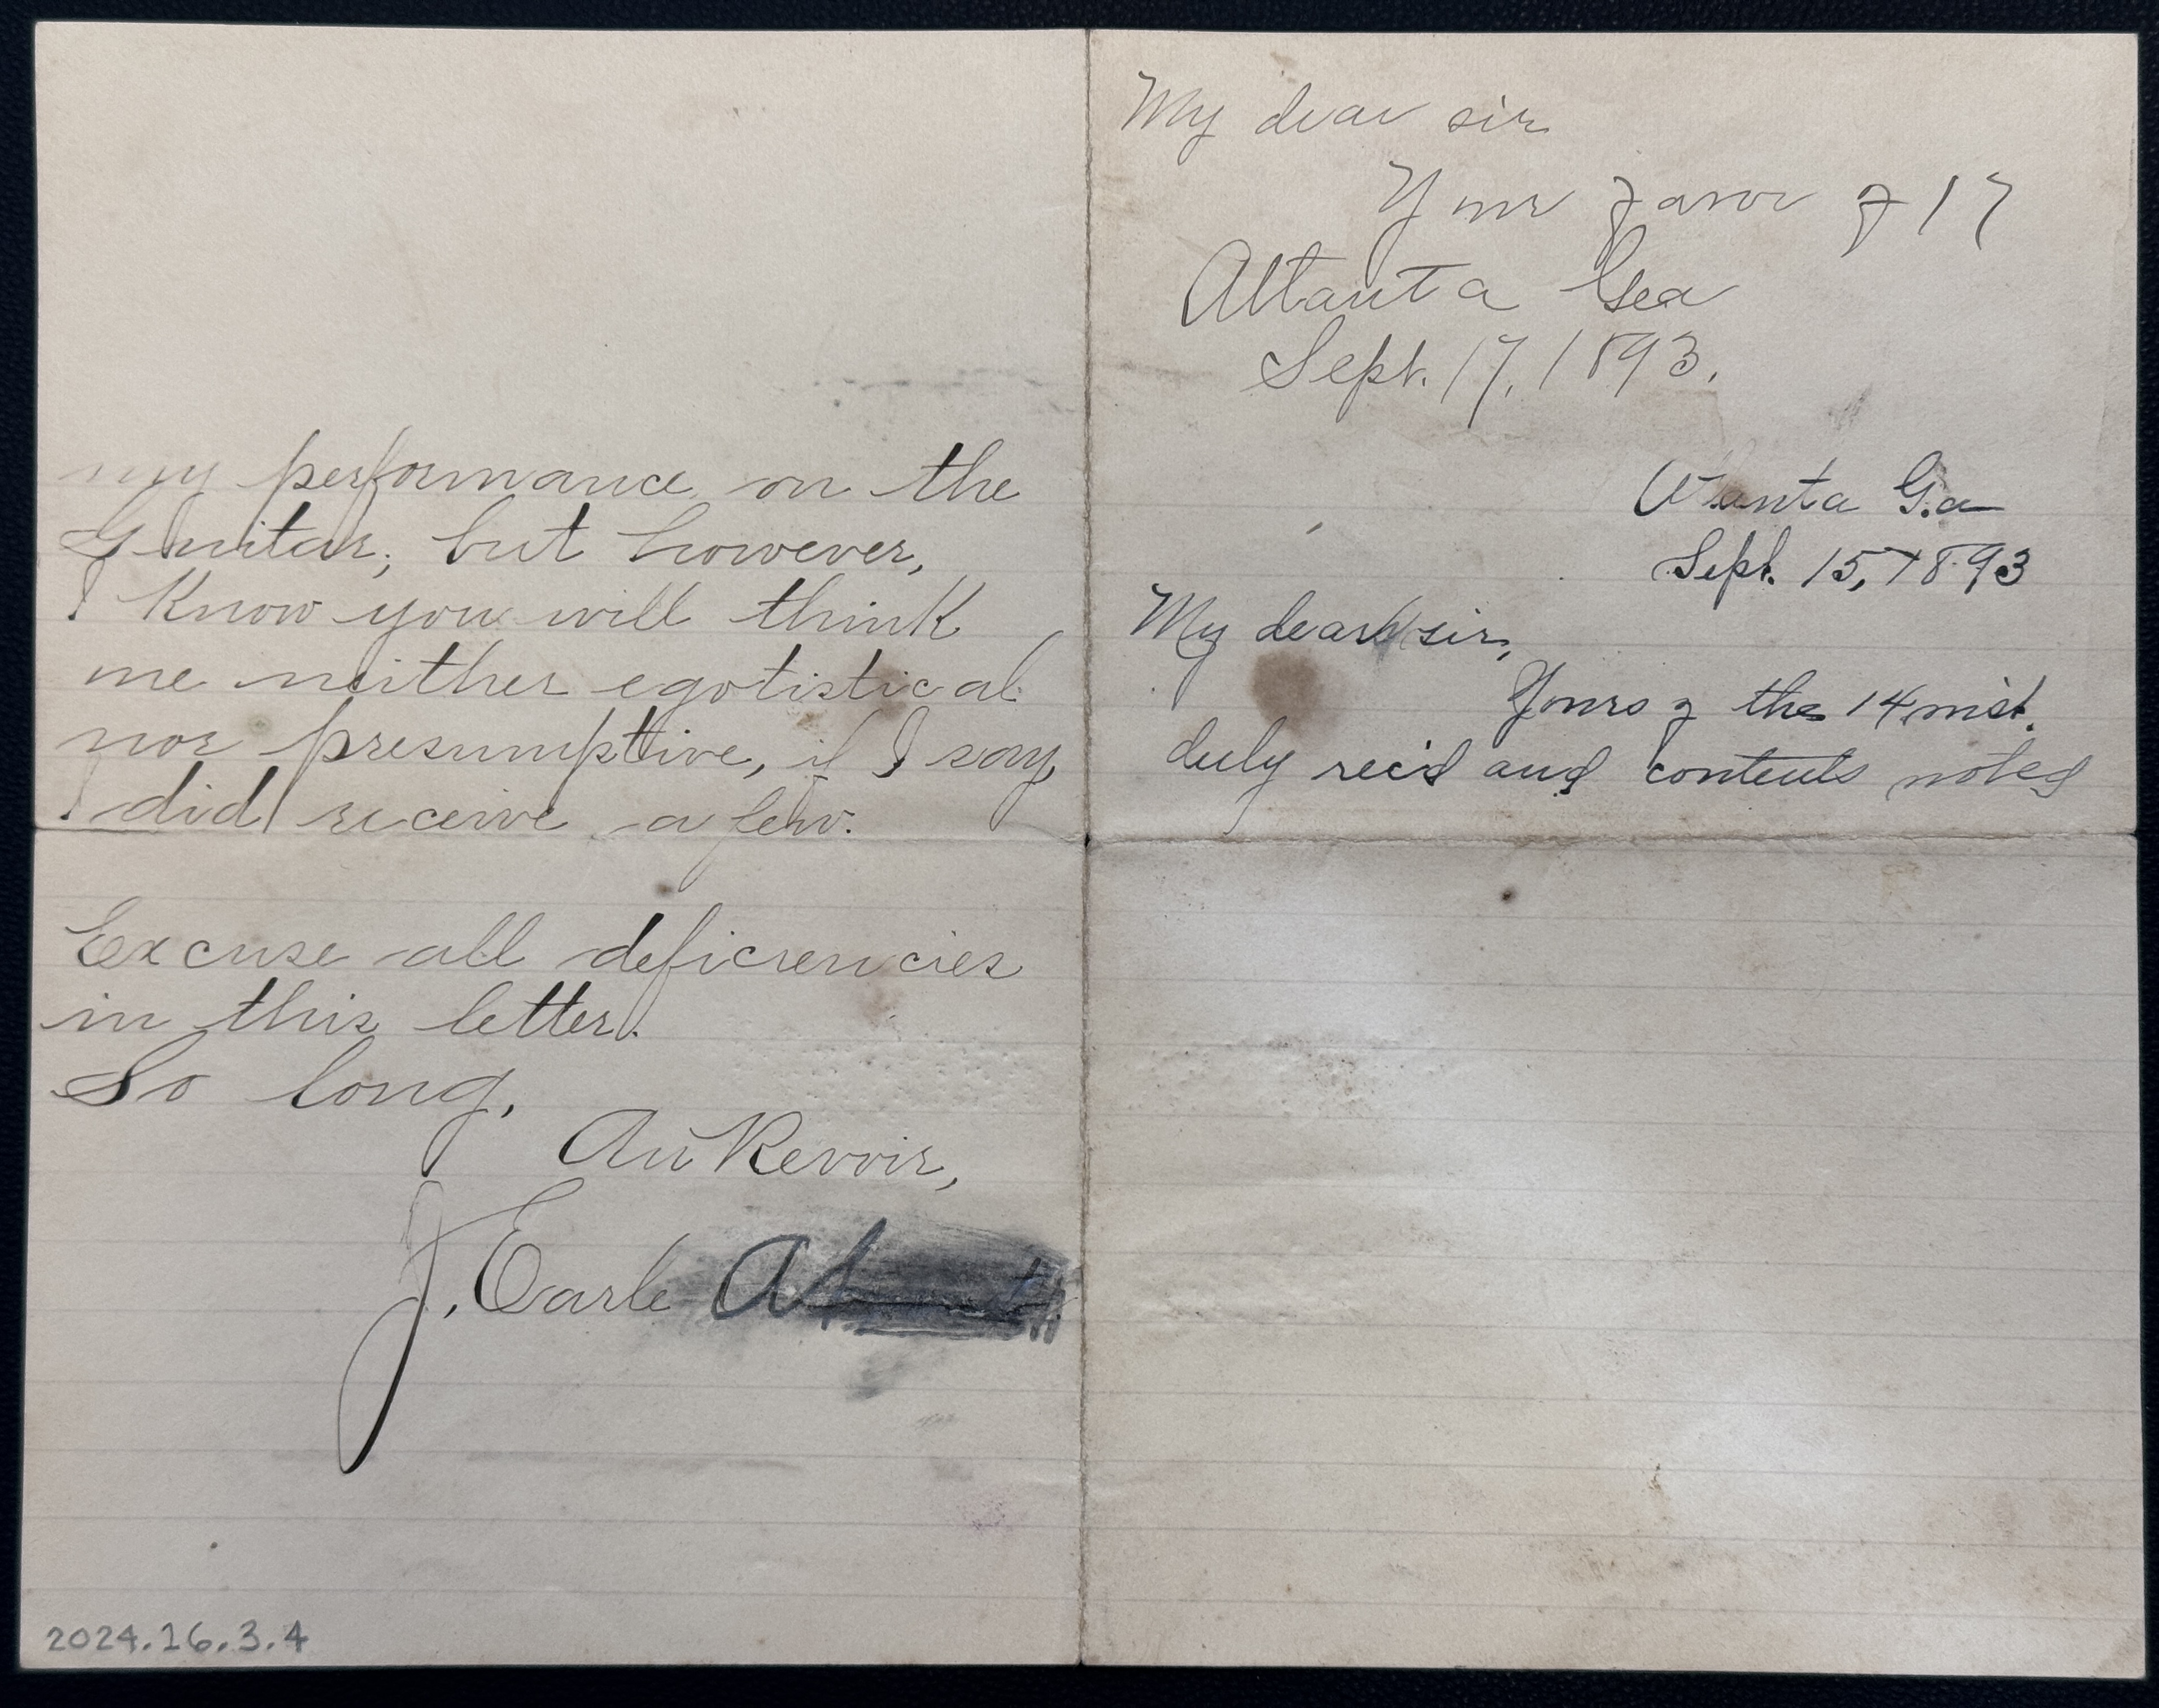 my performance on the
Guitar; but however,
I know you will think
me neither egotistical
nor presumptive, if I say
I did receive a few.
Excuse all deficiencies
in this letter.
So long.
Au Revoir,
J. Earle
2024.16.3.4
My dear sir
Your favor of 17
Altanta Gea
Sept. 17, 1893.
Ga
Sept. 15, 1893
My dear sir,
Yours of the 14 inst.
duly rec'd and contents noted